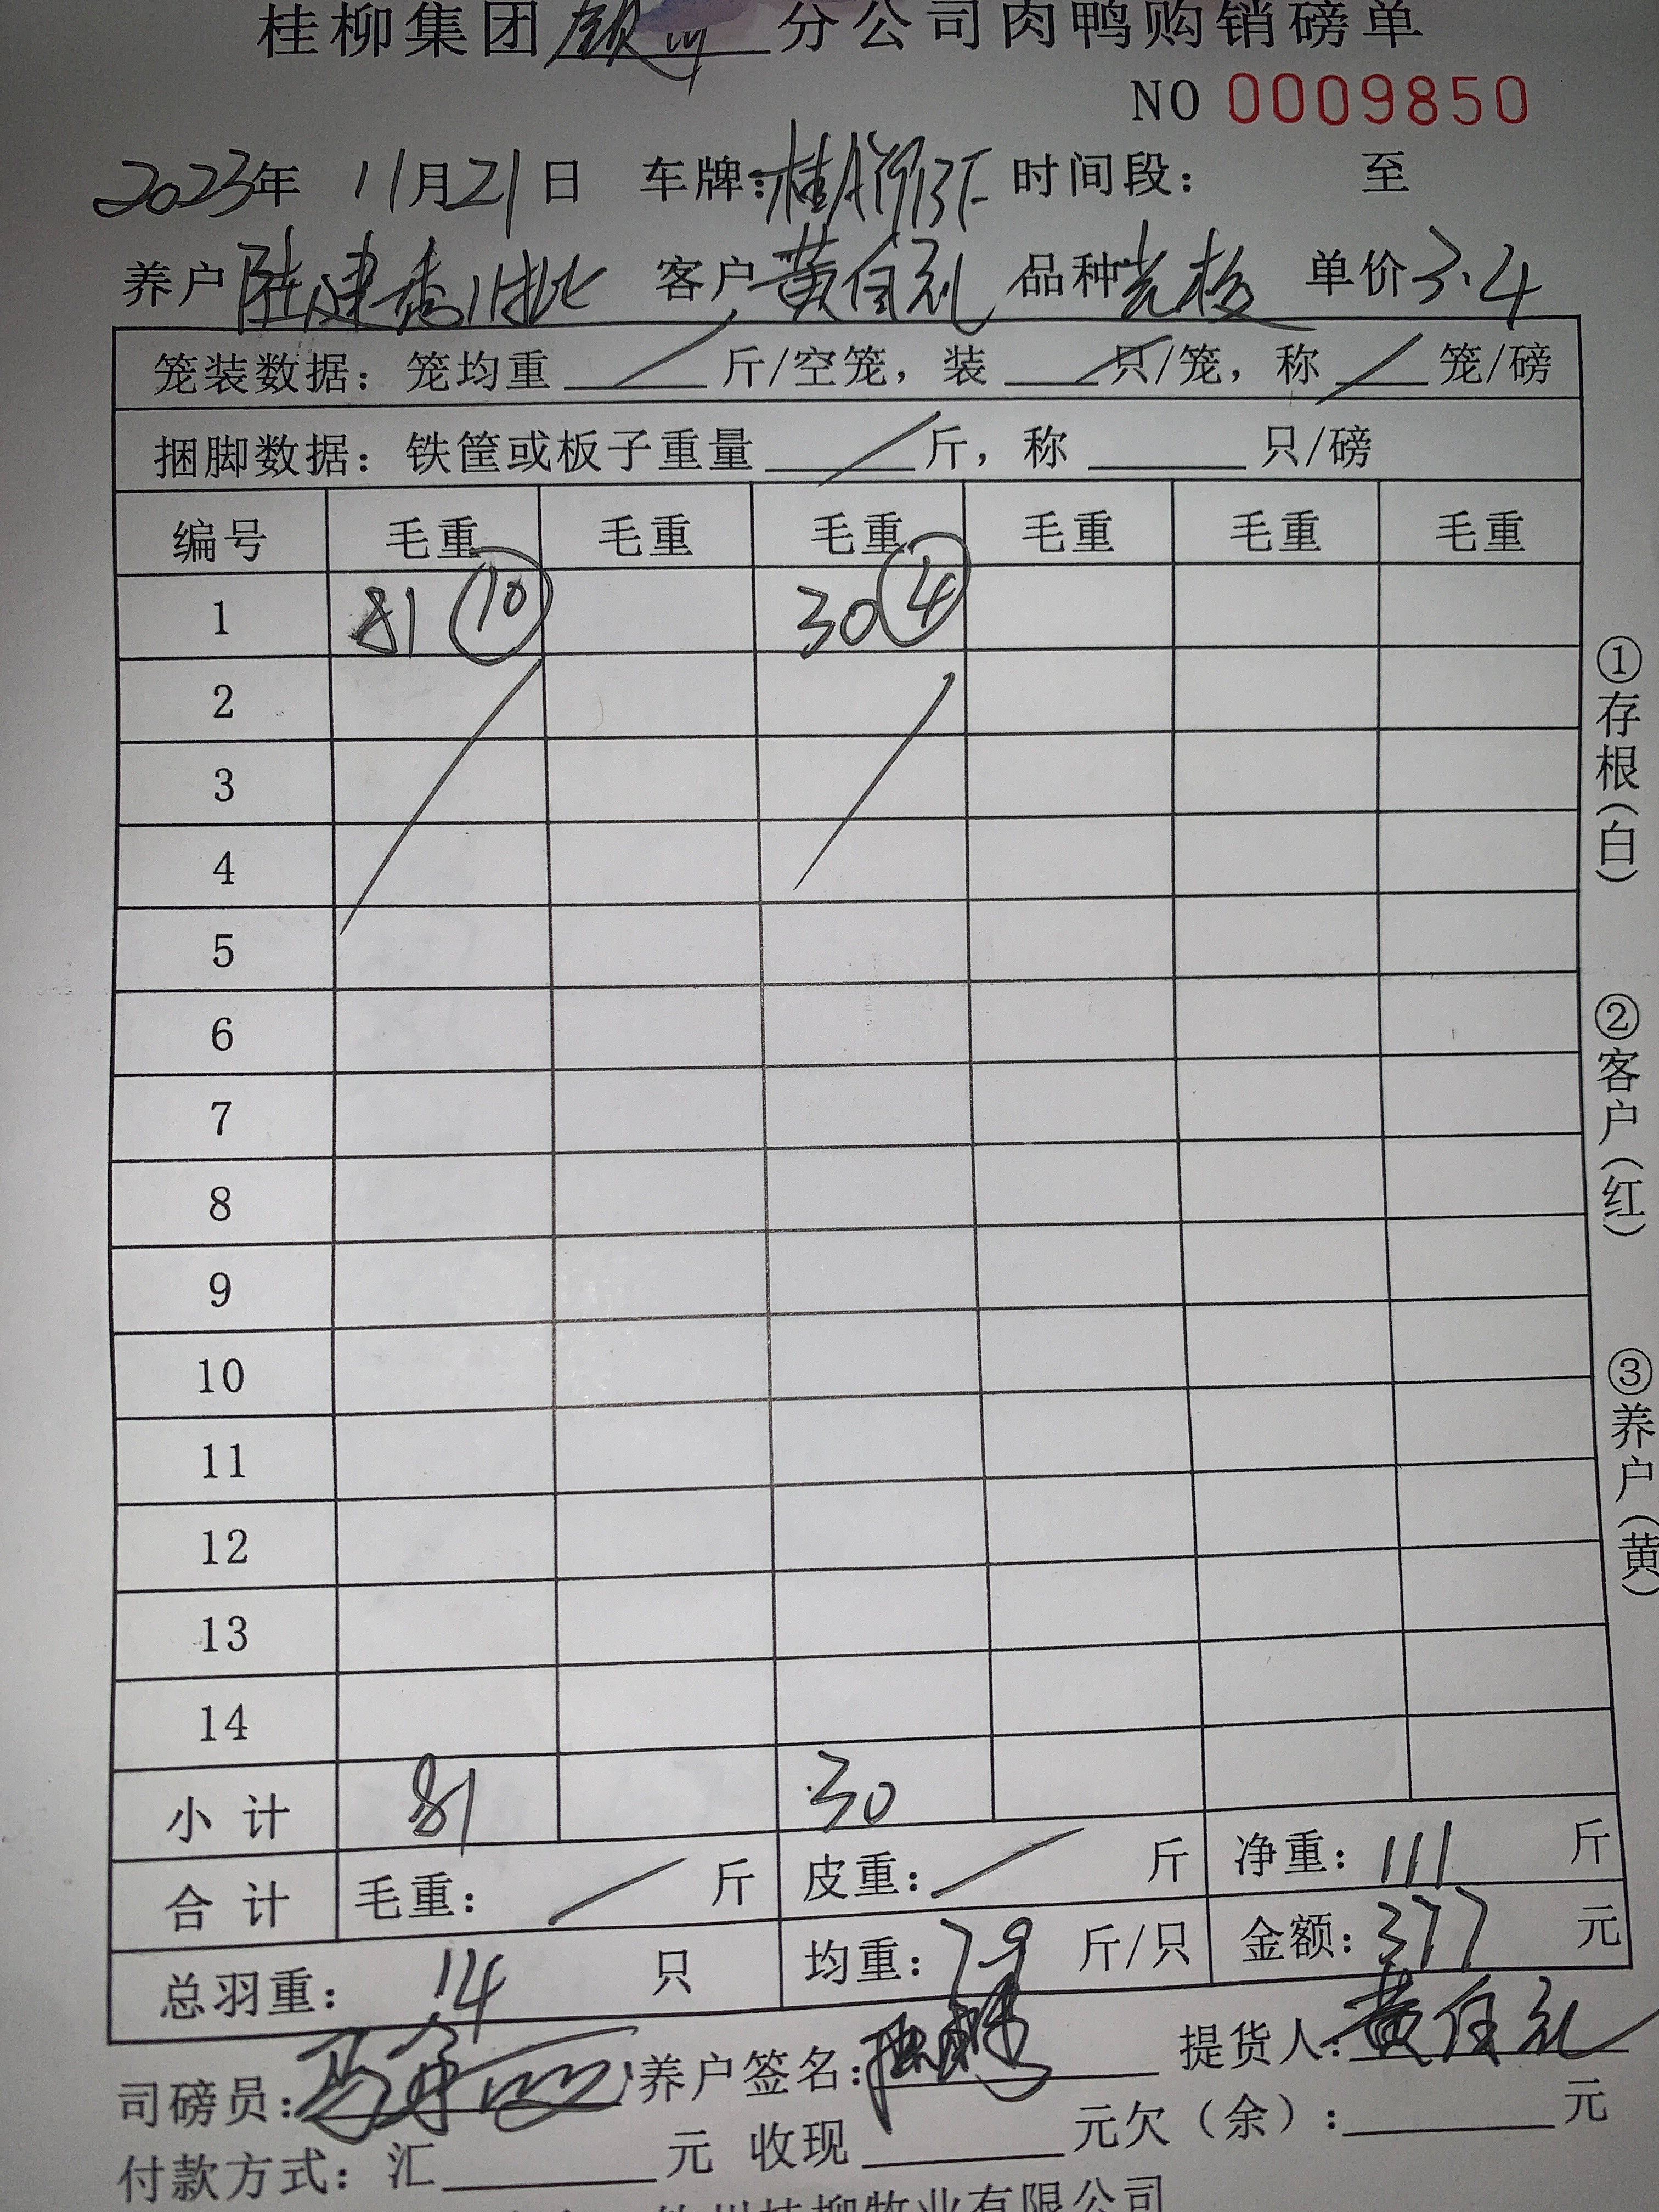 桂柳集团 钦州 分公司肉鸭购销磅单
NO 0009850
2023年 11月21日 车牌: 桂A 时间段: 至
养户 陆建 批 客户 黄自礼 品种 单价 3.4
笼装数据: 笼均重 / 斤/空笼, 装 / 只/笼, 称 / 笼/磅
捆脚数据: 铁筐或板子重量 / 斤, 称 只/磅
编号 毛重 毛重 毛重 毛重 毛重 毛重
1 81 ⑩ 30 ④
2
3
4
5
6
7
8
9
10
11
12
13
14
小计 81 30
合计 毛重: / 斤 皮重: / 斤 净重: 111 斤
总羽重: 14 只 均重: 7.9 斤/只 金额: 377 元
司磅员: 养户签名: 提货人: 黄自礼
付款方式: 汇 元 收现 元欠(余): 元
钦州桂柳牧业有限公司
①存根(白)
②客户(红)
③养户(黄)